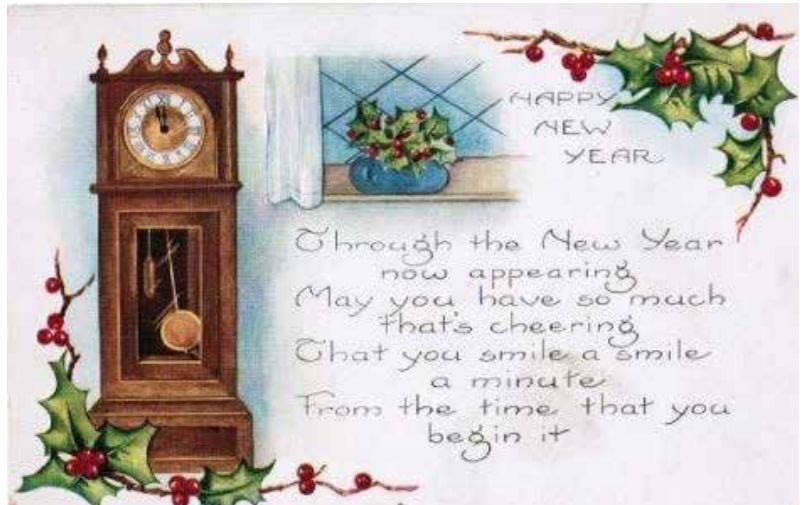 HAPPY
NEW
YEAR
Through the New Year
now appearing
May you have so much
that's cheering
That you smile a smile
a minute
From the time that you
begin it